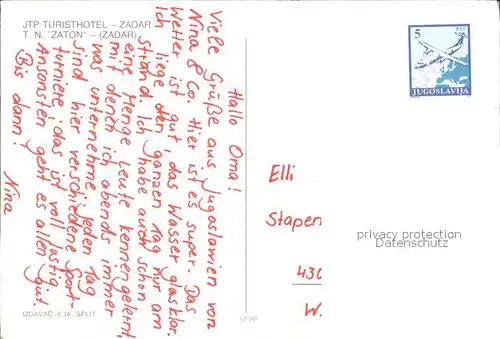 JTP TURISTHOTEL – ZADAR
T. N. "ZATON" – (ZADAR)
Hallo Oma!
Viele Grüße aus Jugoslawien von
Nina & Co. Hier ist es super. Das
Wetter ist gut, das Wasser glasklar.
Ich liege den ganzen Tag nur am
Strand. Ich habe auch schon
eine Menge Leute kennengelernt,
mit denen ich abends immer
was unternehme. jeden Tag
sind hier verschiedene Sport-
turniere, das ist voll lustig.
Ansonsten geht es allen gut.
Bis dann! Nina
5
JUGOSLAVIJA
Elli
Stapen
430
W.
privacy protection
Datenschutz
SPLIT